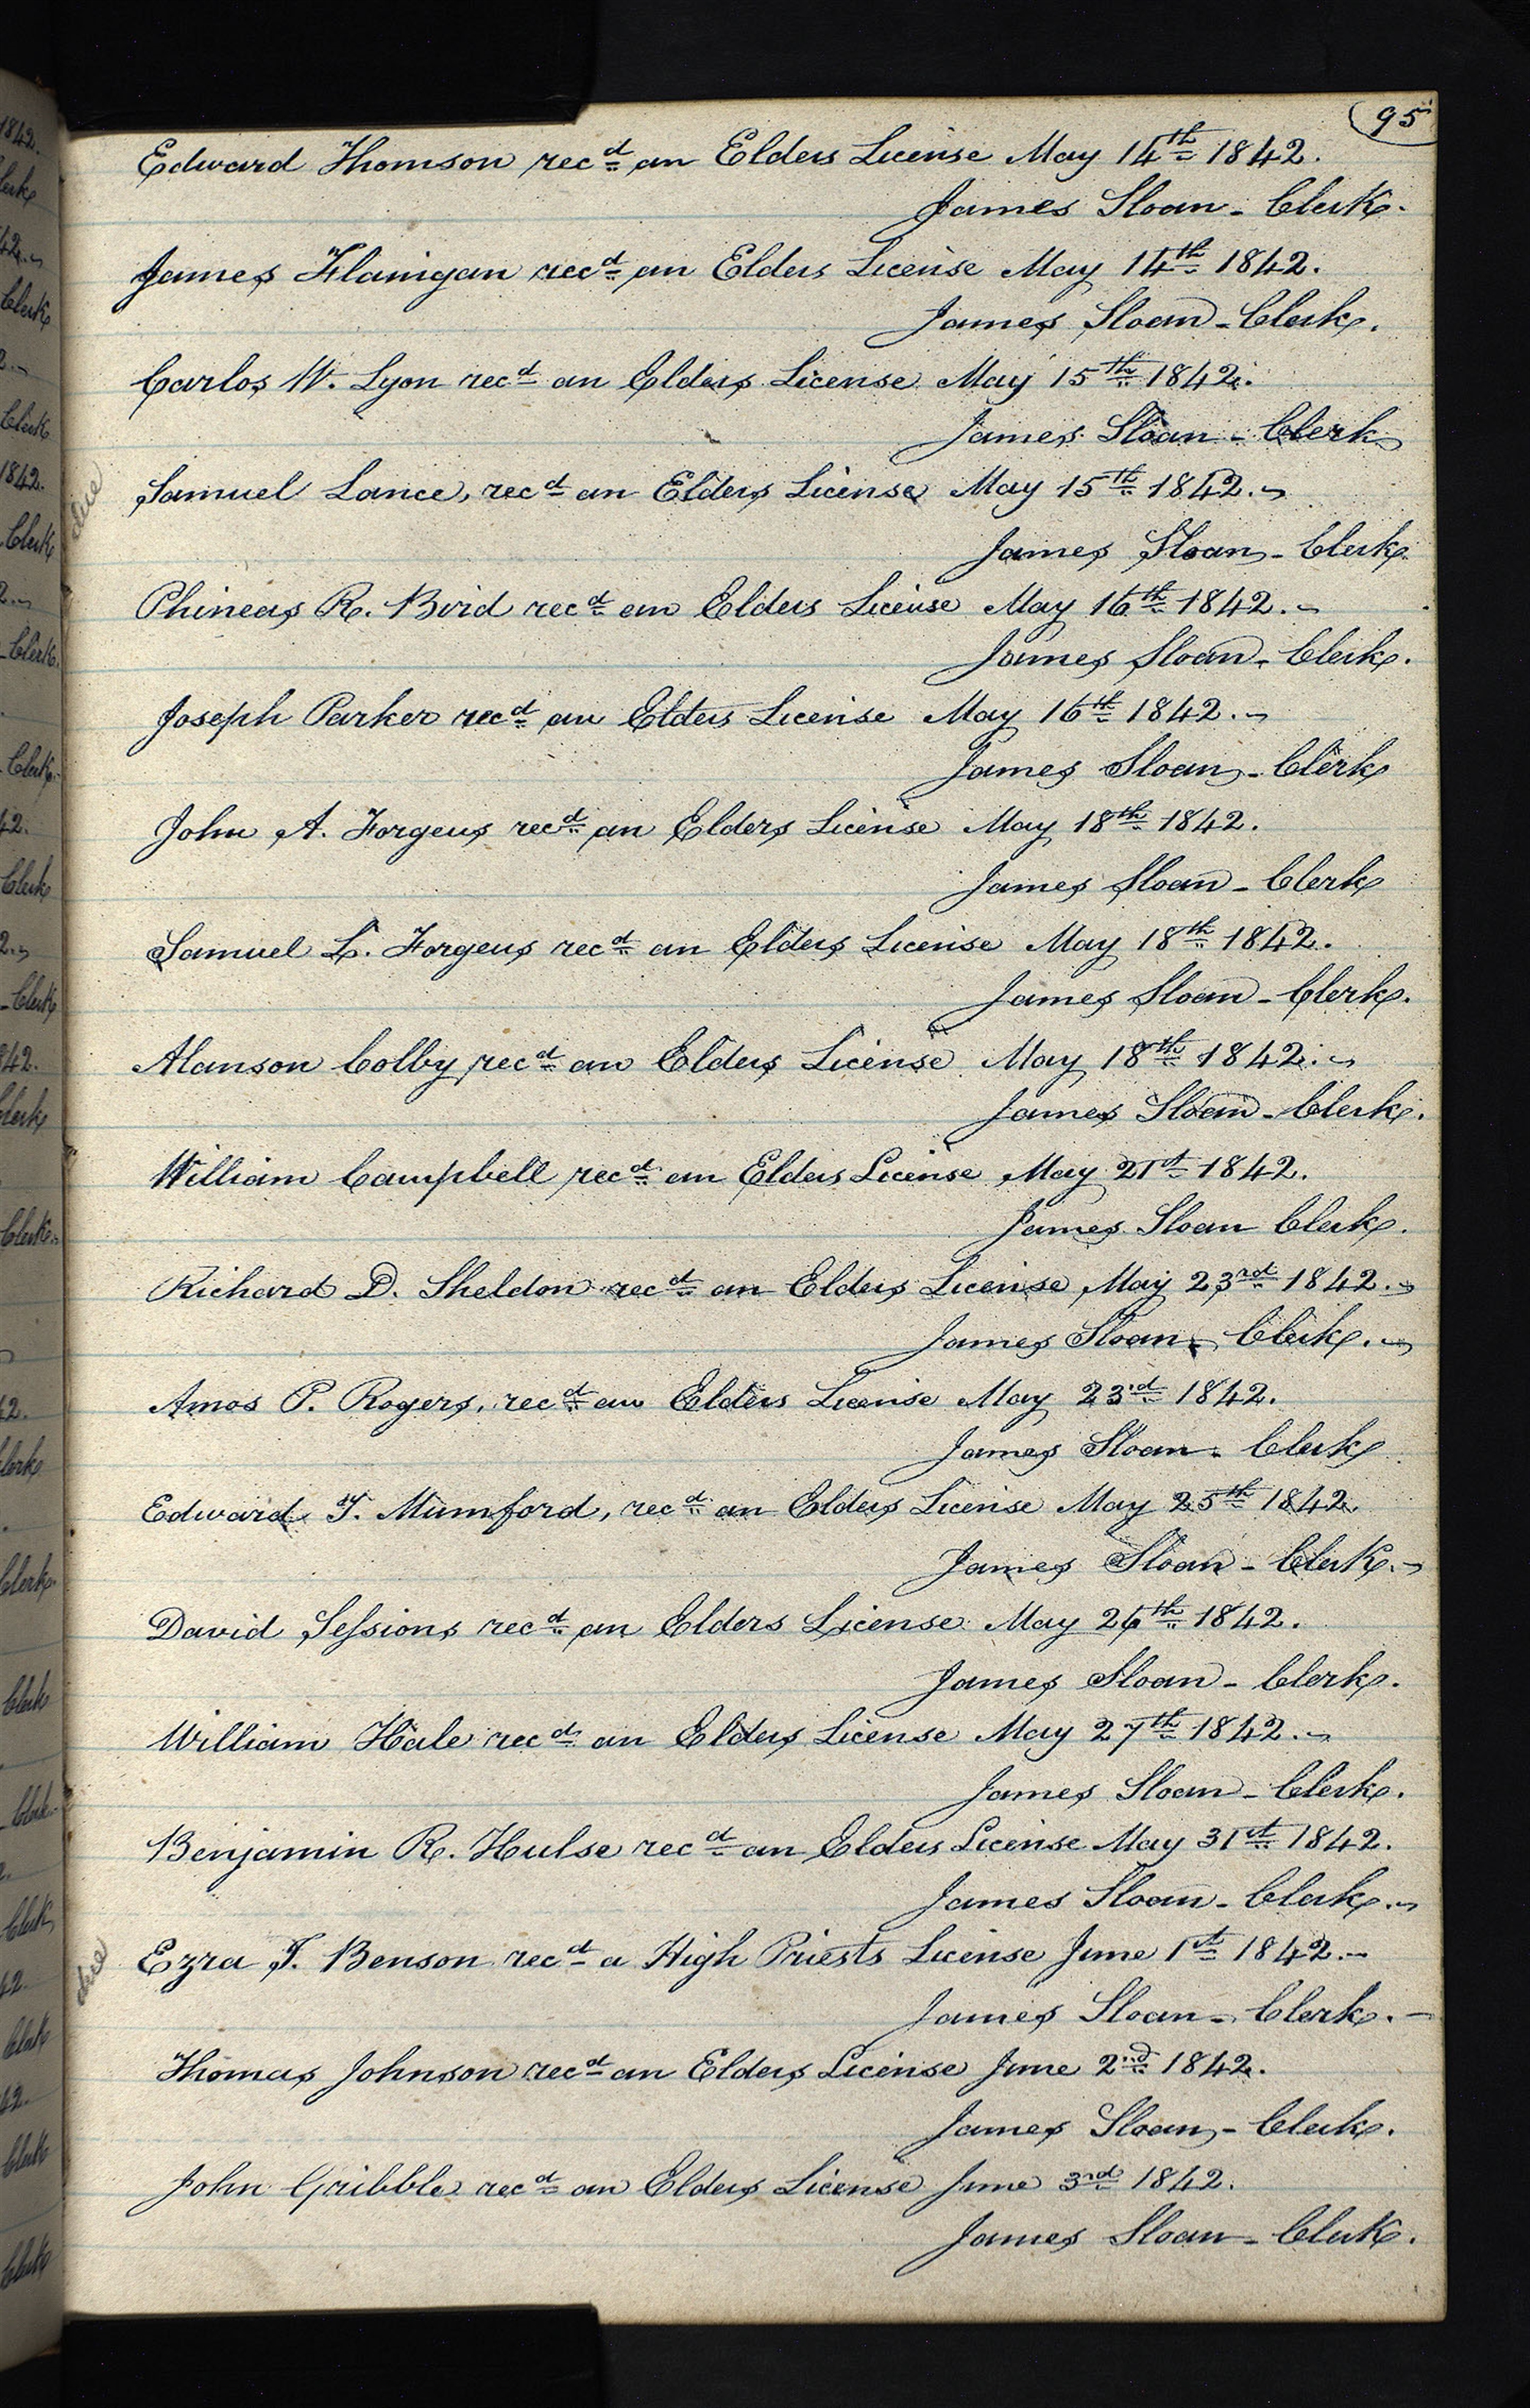 95
Edward Thomson recd an Elders License May 14th 1842.
James Sloan - Clerk.
James Flanigan recd an Elders License May 14th 1842.
James Sloan - Clerk.
Carlos W. Lyon recd an Elders License May 15th 1842.
James Sloan - Clerk
Samuel Lance, recd an Elders License May 15th 1842.
James Sloan - Clerk.
Phineas R. Bird recd an Elders License May 16th 1842.
James Sloan - Clerk.
Joseph Parker recd an Elders License May 16th 1842.
James Sloan - Clerk
John A. Forgeus recd an Elders License May 18th 1842.
James Sloan - Clerk
Samuel L. Forgeus recd an Elders License May 18th 1842.
James Sloan - Clerk.
Alanson Colby recd an Elders License May 18th 1842.
James Sloan - Clerk.
William Campbell recd an Elders License May 21st 1842.
James Sloan Clerk.
Richard D. Sheldon recd an Elders License May 23rd 1842.
James Sloan - Clerk.
Amos P. Rogers, recd an Elders License May 23rd 1842.
James Sloan - Clerk
Edward T. Mumford, recd an Elders License May 25th 1842.
James Sloan - Clerk.
David Sessions recd an Elders License May 26th 1842.
James Sloan - Clerk.
William Hale recd an Elders License May 27th 1842.
James Sloan - Clerk.
Benjamin R. Hulse recd an Elders License May 31st 1842.
James Sloan - Clerk.
Ezra T. Benson recd a High Priests License June 1st 1842.
James Sloan - Clerk.
Thomas Johnson recd an Elders License June 2nd 1842.
James Sloan - Clerk.
John Gribble recd an Elders License June 3rd 1842.
James Sloan - Clerk.